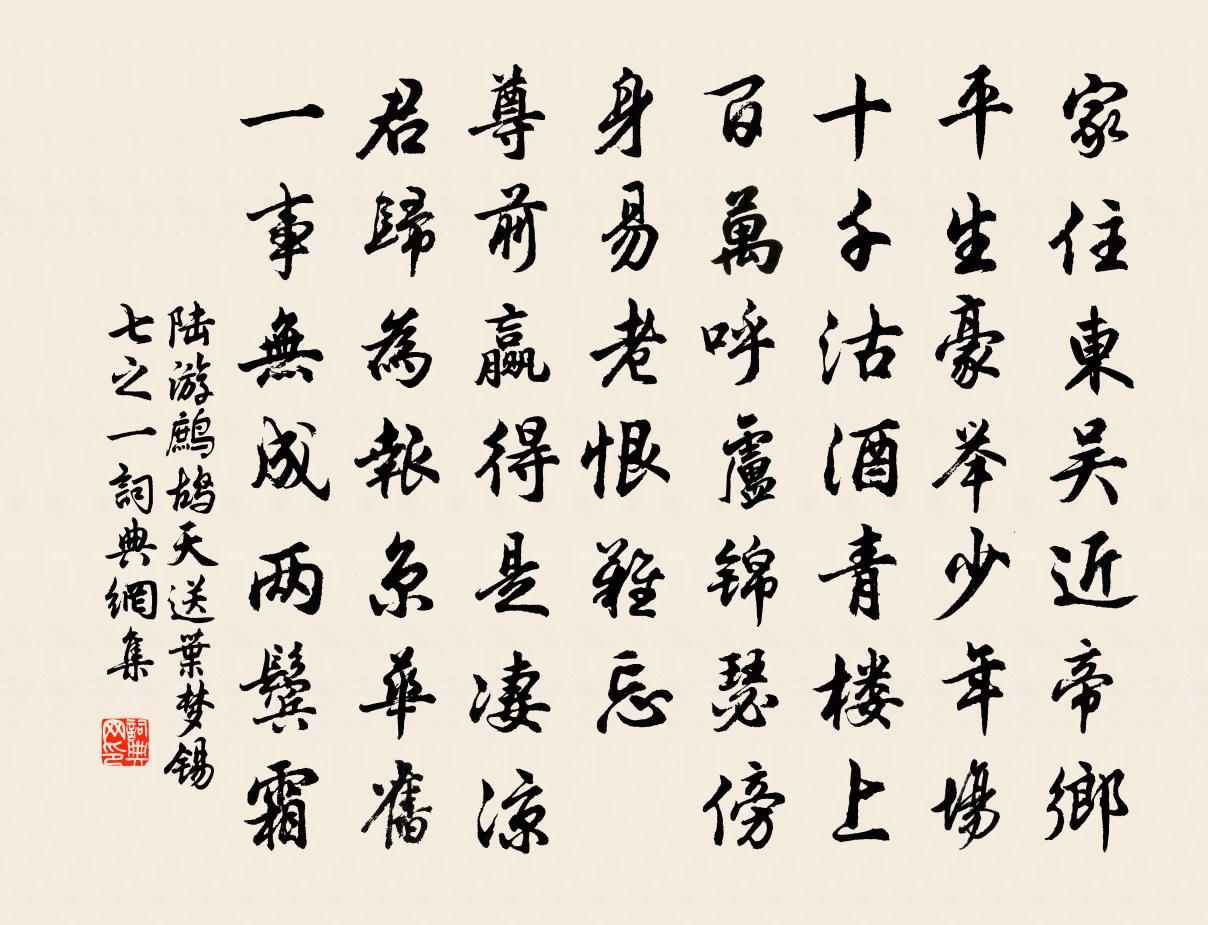 家住東吴近帝鄉
平生豪举少年場
十千沽酒青楼上
百萬呼盧锦瑟傍
身易老恨難忘
尊前贏得是淒涼
君歸為報京華舊
一事無成两鬓霜
陆游鷓鸪天送葉梦锡
七之一詞典網集
詞典
网印